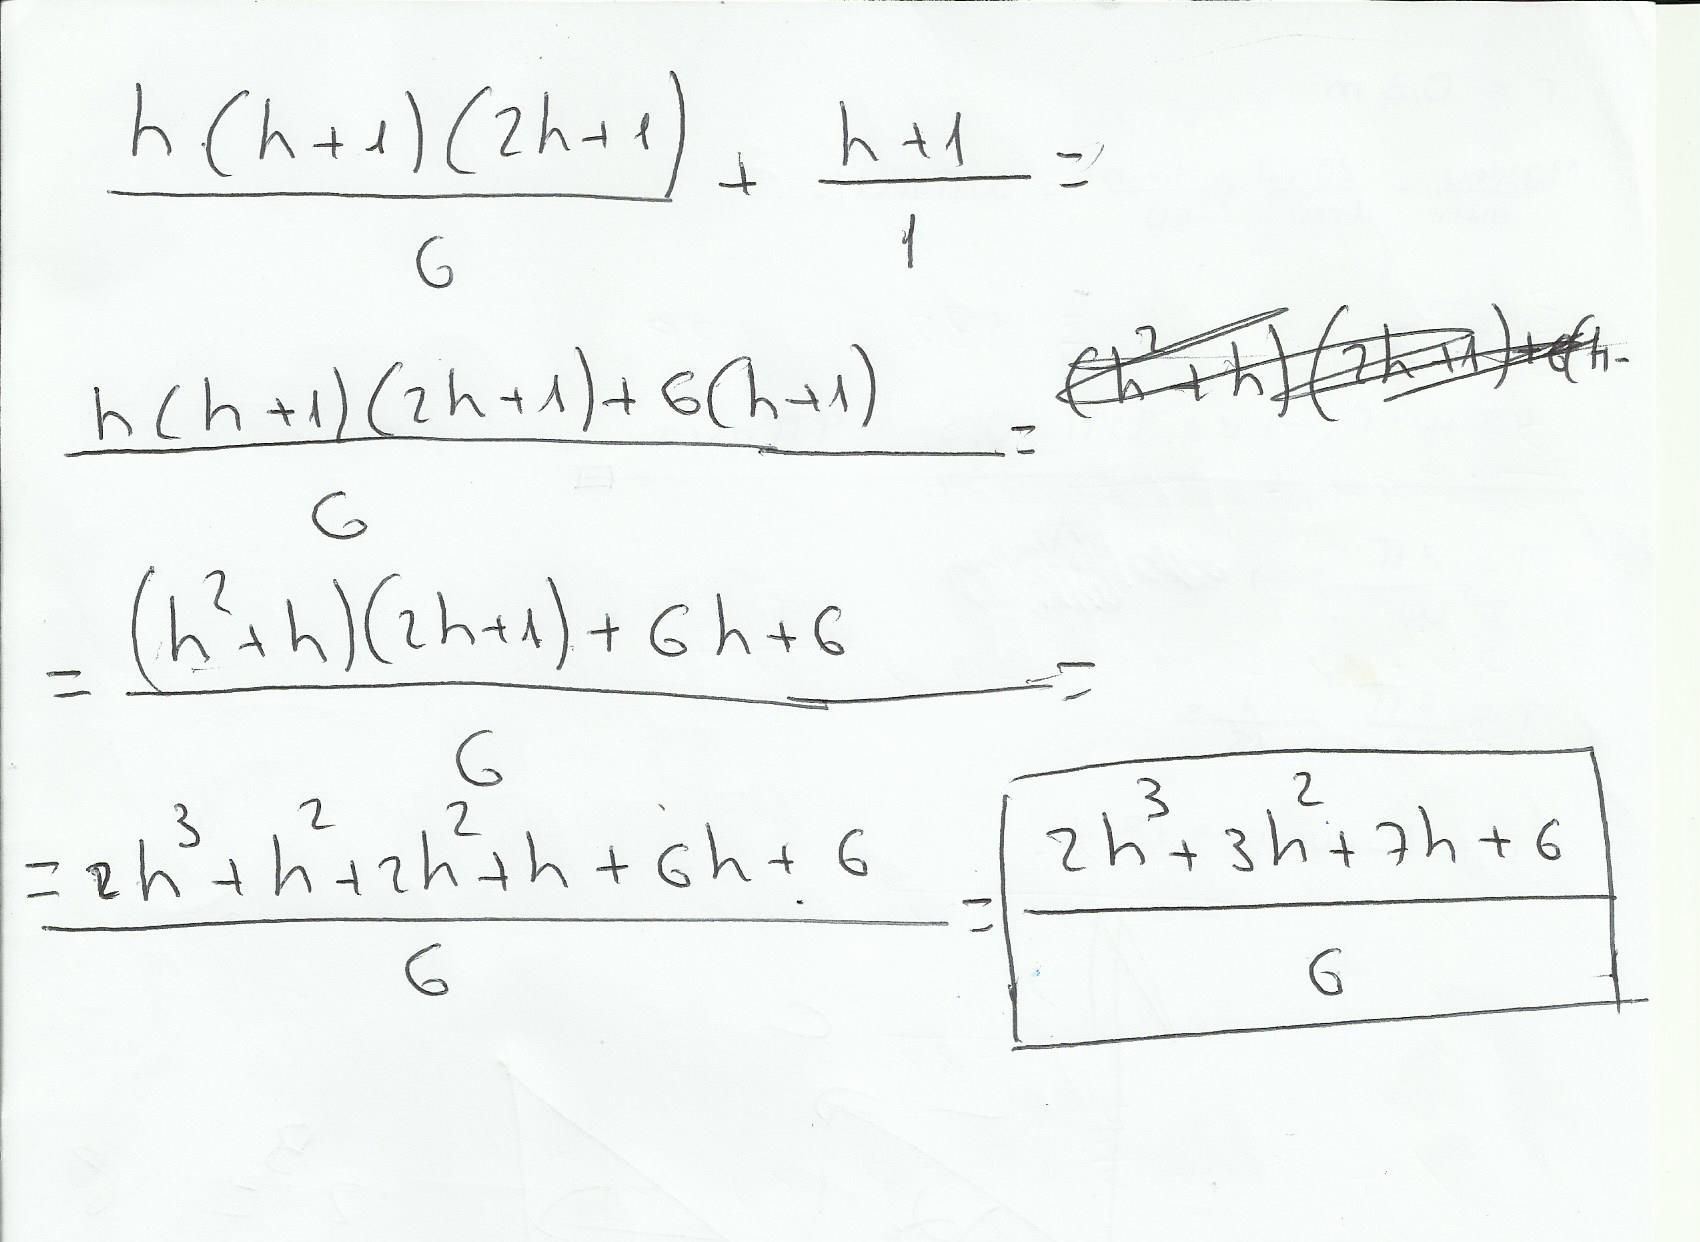 h(h+1)(2h+1)/6 + h+1/1 =
h(h+1)(2h+1)+6(h+1)/6 = (h²+h)(2h+1)+6(h-
= (h²+h)(2h+1)+6h+6/6 =
= 2h³+h²+2h²+h+6h+6/6 = 2h³+3h²+7h+6/6